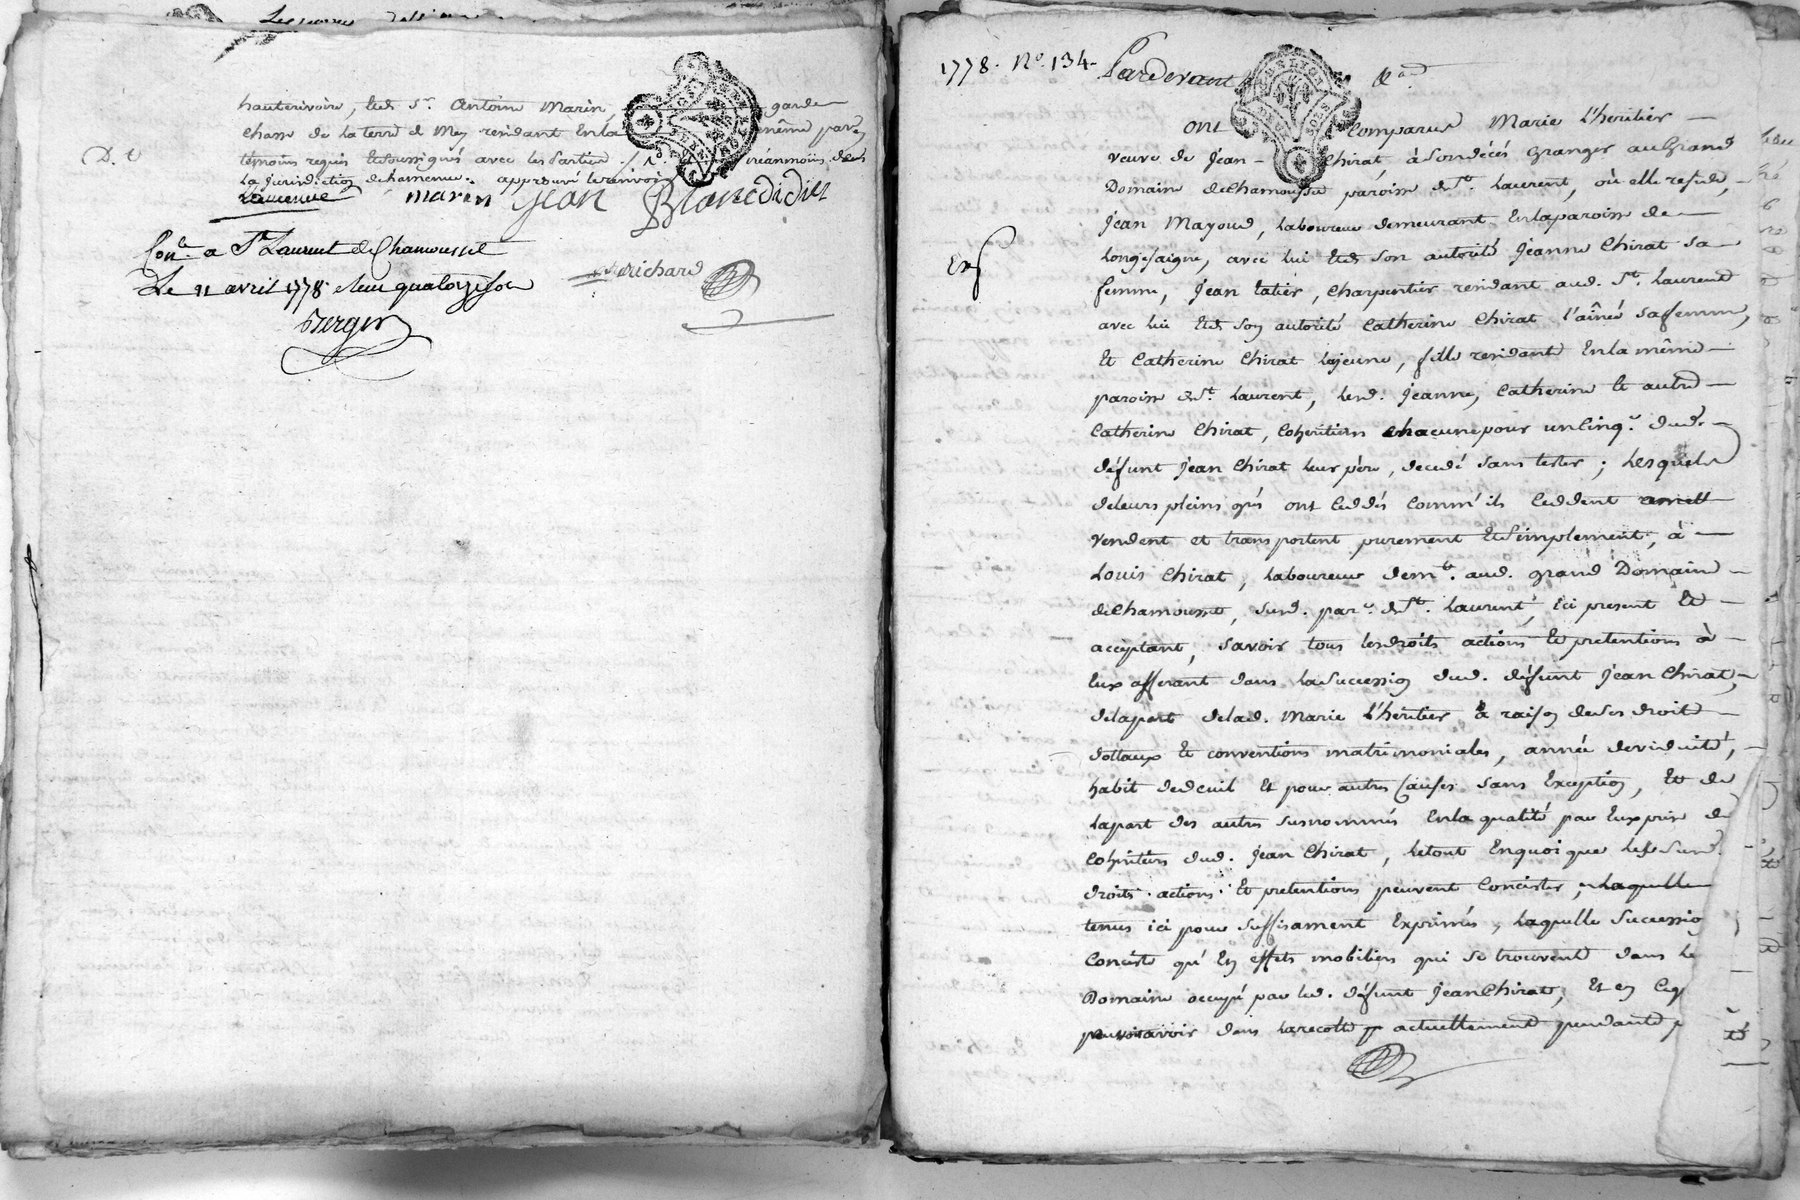 hauterivoire, Led. Sr. Antoine Marin, garde
chasse de la terre de Mey residant En la même par.e,
temoins requis Et soussignés avec les Parties néanmoins dans
D. C
la Jurisdiction de hamenue. approuvé le renvoi
marin Jean Blanc didier
Con.le a St Laurent de Chamousset
Le 11 avril 1778 Reçu quatorze sols
richard
Berger
1778. No. 134. Pardevant &a.
ont Comparus Marie L'héritier
veuve de Jean Chirat à son décés Granger au Grand
Domaine de Chamousset paroisse de St. Laurent, où elle reside,
Jean Mayoud, Laboureur demeurant En la paroisse de
Longesaigne, avec lui Et de Son autorité Jeanne Chirat sa
Exp
femme, Jean tatier, Charpentier residant aud. St. Laurent
avec lui Et de son autorité Catherine Chirat l'aînée sa femme,
Et Catherine Chirat lajeune, fille residante En la même
paroisse de St. Laurent, Lesd. Jeanne, Catherine Et autre
Catherine Chirat, Cohéritieres chacune pour un Cinq.e dud.
défunt Jean Chirat leur père, decedé sans tester ; Lesquels
de leurs pleins grés ont Ceddés comm'ils Ceddent
vendent et transportent purement Et Simplement, à
Louis Chirat, Laboureur dem.t aud. grand Domaine
de Chamousset, susd. par.e de St. Laurent, ici present Et
acceptant, Savoir tous les droits actions Et pretentions à
Eux afferant dans la Succession dud. défunt Jean Chirat,
de la part de lad. Marie L'héritier à raison de Ses droits
dottaux Et conventions matrimoniales, année de viduité,
habit de deuil Et pour autres Causes Sans Exception, Et de
la part des autres Susnommés En la qualité par Eux prise de
Cohéritiers dud. Jean Chirat, le tout En quoi que Lesd. Susd.
droits actions Et pretentions peuvent Concister, laquelle
tenus ici pour Suffisament Exprimés, laquelle Successio
Conciste qu'En effets mobiliers qui se trouvent dans le
Domaine occupé par led. défunt Jean Chirat, Et en Ceq
pouvoit avoir dans la recolte actuellement pendante